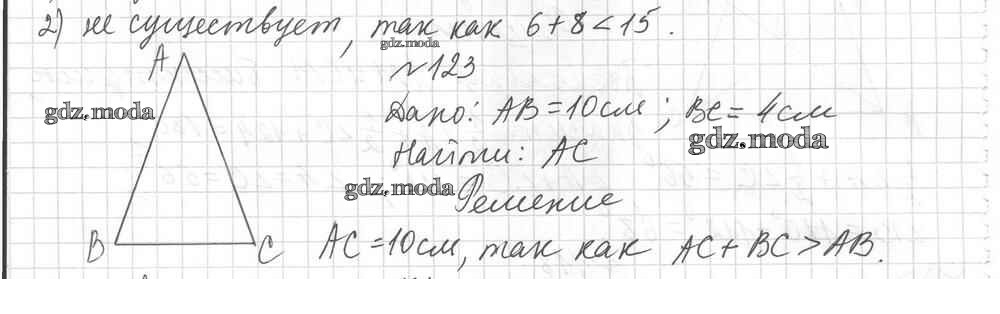 2) не существует, так как 6+8<15.
gdz.moda
A
№123
gdz.moda
Дано: AB=10см; BC=4см
gdz.moda
Найти: AC
gdz.moda
Решение
B
C
AC=10см, так как AC+BC>AB.